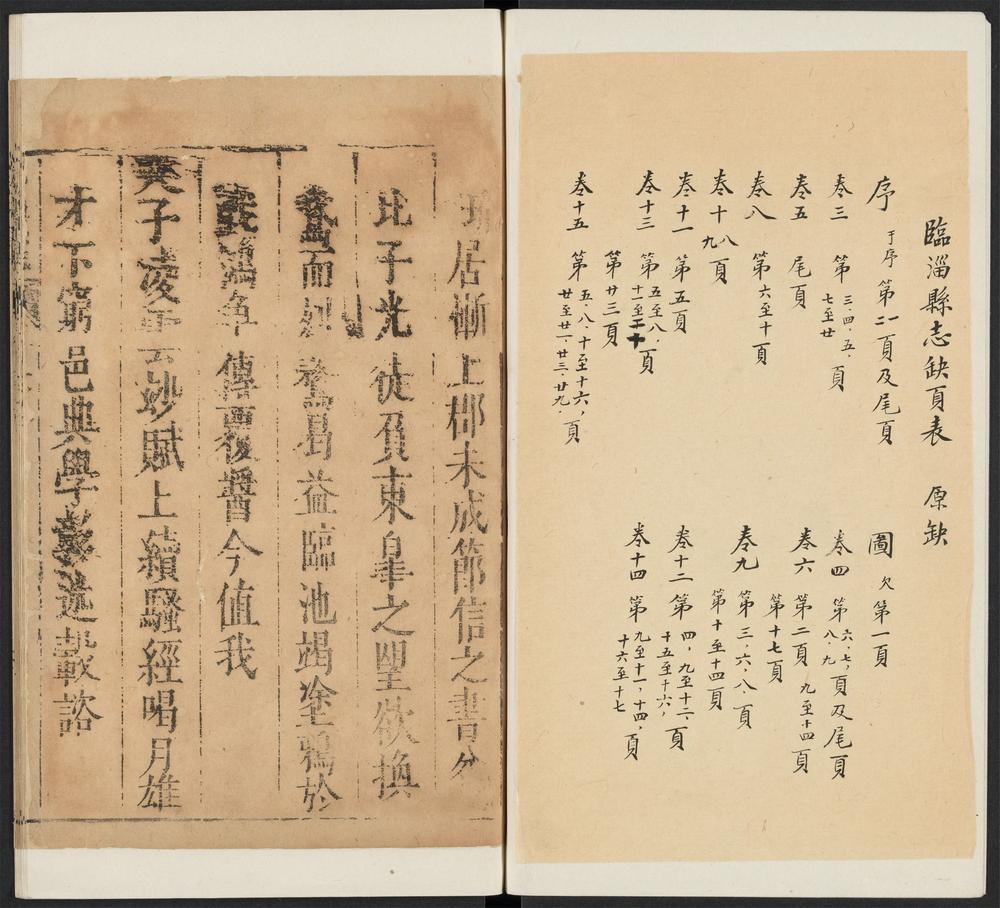 臨淄縣志缺頁表 原缺
序 于序第二一頁及尾頁
圖 欠第一頁
卷三 第三、四、五、七至廿頁
卷四 第六、七、八、九頁及尾頁
卷五 尾頁
卷六 第二頁 九至十四頁
第十七頁
卷八 第六至十頁
卷九 第三、六、八頁
第十至十四頁
卷十 八九頁
卷十一 第五頁
卷十二 第四，九至十二、十五至十六，頁
卷十三 第五至八、十一至二十頁
第廿三頁
卷十四 第九至十一，十四，十六至十七頁
卷十五 第五、八、十至十六，廿至廿一、廿三、廿九，頁
居漸上郡未成節信之書
比子光徒負東皋之望欲換
而 驚曷益臨池竭塗鴉於
爭傳覆醬今值我
天子凌雲妙賦上續騷經喝月雄
才下窮邑典學 選載諮